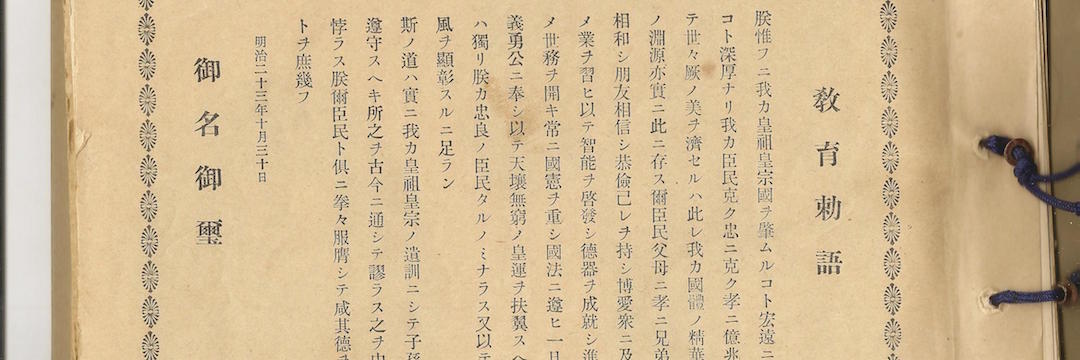 教育勅語
朕惟フニ我カ皇祖皇宗國ヲ肇ムルコト宏遠ニ
コト深厚ナリ我カ臣民克ク忠ニ克ク孝ニ億兆
テ世々厥ノ美ヲ濟セルハ此レ我カ國體ノ精華
ノ淵源亦實ニ此ニ存ス爾臣民父母ニ孝ニ兄弟
相和シ朋友相信シ恭儉己レヲ持シ博愛衆ニ及
メ業ヲ習ヒ以テ智能ヲ啓發シ德器ヲ成就シ進
メ世務ヲ開キ常ニ國憲ヲ重シ國法ニ遵ヒ一旦
義勇公ニ奉シ以テ天壤無窮ノ皇運ヲ扶翼スヘ
ハ獨リ朕カ忠良ノ臣民タルノミナラス又以テ
風ヲ顯彰スルニ足ラン
斯ノ道ハ實ニ我カ皇祖皇宗ノ遺訓ニシテ子孫
遵守スヘキ所之ヲ古今ニ通シテ謬ラス之ヲ中
悖ラス朕爾臣民ト俱ニ拳々服膺シテ咸其德ヲ
トヲ庶幾フ
明治二十三年十月三十日
御名御璽